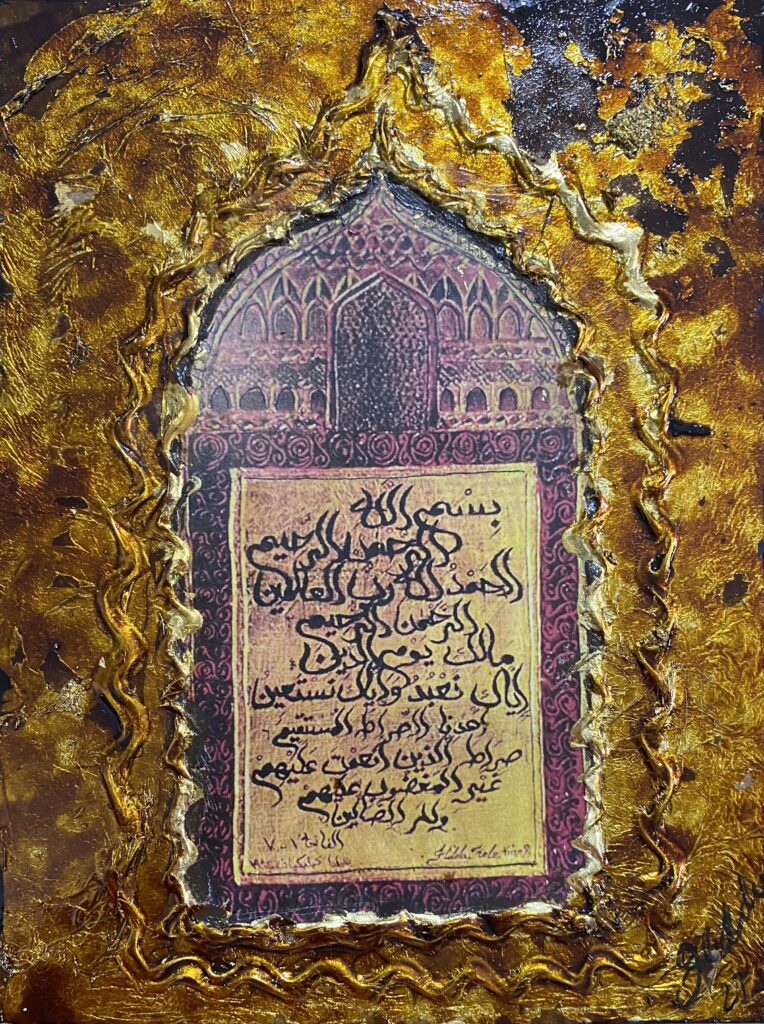 بِسْمِ الله
الرحمن الرحيم
الحَمْدُ لله ربّ العالمين
الرحمن الرحيم
مالك يوم الدين
إياك نَعْبُدُ وإياك نستعين
اهدنا الصراط المستقيم
صراط الذين أنعمت عَلَيْهِمْ
غَيْرِ المغضُوبِ عليهمْ
ولا الضالين
الفاتحة ١-٧